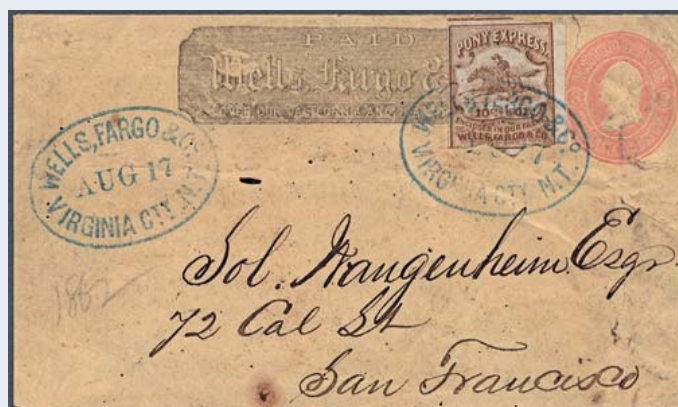 PAID
Wells, Fargo &
PONY EXPRESS.
10 CENTS
WELLS, FARGO & CO.
WELLS, FARGO & Co.
AUG 17
VIRGINIA CTY. N.T.
WELLS, FARGO & Co.
VIRGINIA CTY. N.T.
1862
Sol. Wangenheim Esqr
72 Cal St
San Francisco